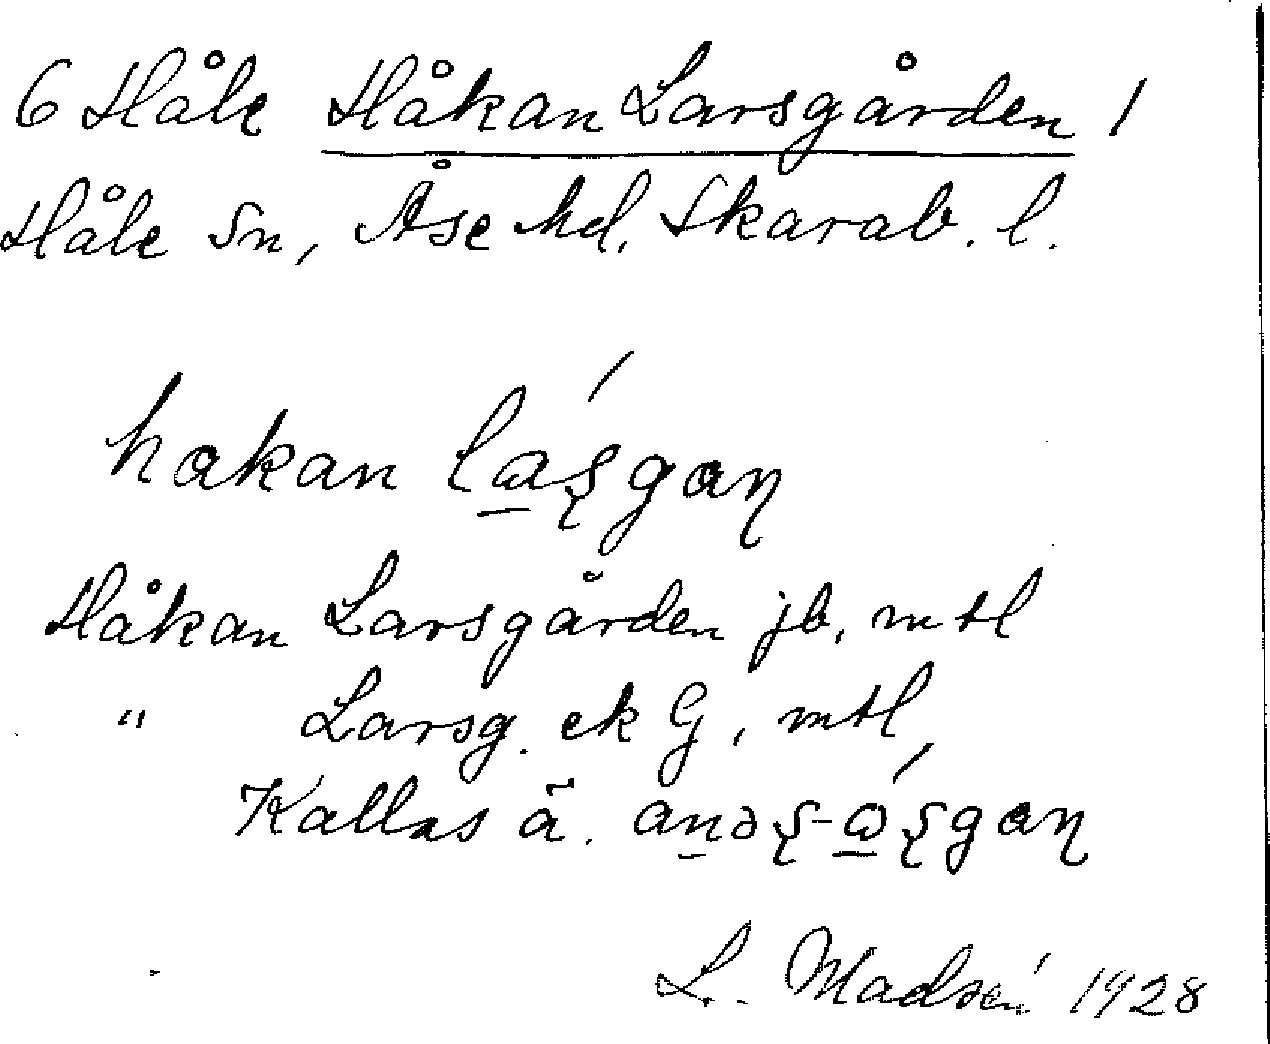 6 Håle Håkan Larsgården 1
Håle Sn, Åse hd, Skarab. l.
hakan
Håkan Larsgården jb, mtl
" Larsg. ek G, mtl
Kallas ä.
L. Madsén 1928